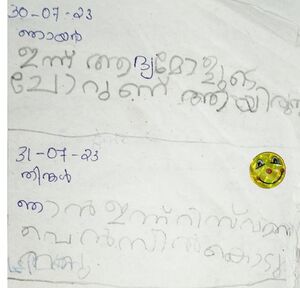 30-07-23
ഞായർ
ഇന്ന് ആദ്യമോളുടെ
ചോറൂണ് ആയിരുന്നു
31-07-23
തിങ്കൾ
ഞാൻ ഇന്ന്
പെൻസിൽ കൊടു